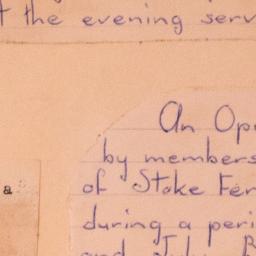 the evening serv
An Op
by members
of Stoke Fer
during a peri
and July
a